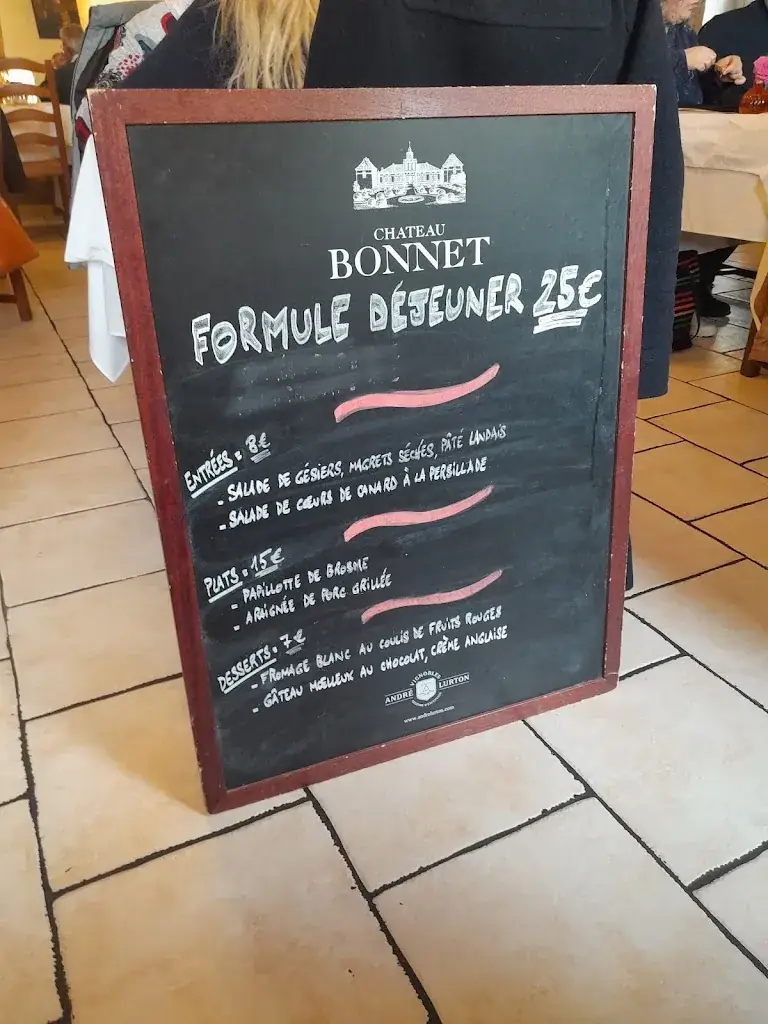 CHATEAU
BONNET
FORMULE DÉJEUNER 25€
ENTRÉES: 8€
- SALADE DE GÉSIERS, MAGRETS SÉCHÉS, PÂTÉ LANDAIS
- SALADE DE CŒURS DE CANARD À LA PERSILLADE
PLATS: 15€
- PAPILLOTTE DE BROSME
- ARAIGNÉE DE PORC GRILLÉE
DESSERTS: 7€
- FROMAGE BLANC AU COULIS DE FRUITS ROUGES
- GÂTEAU MŒLLEUX AU CHOCOLAT, CRÈME ANGLAISE
VIGNOBLES
ANDRÉ LURTON
www.andrelurton.com